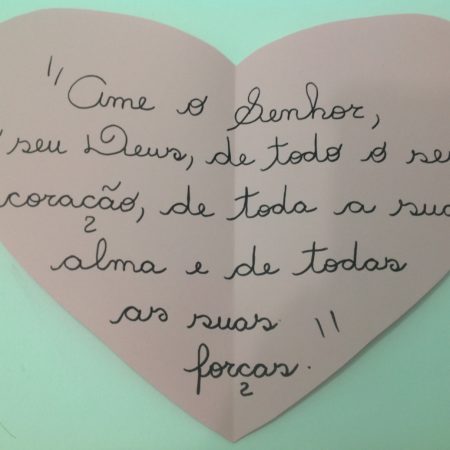 "Ame o Senhor,
o seu Deus, de todo o seu
coração, de toda a sua
alma e de todas
as suas
forças."